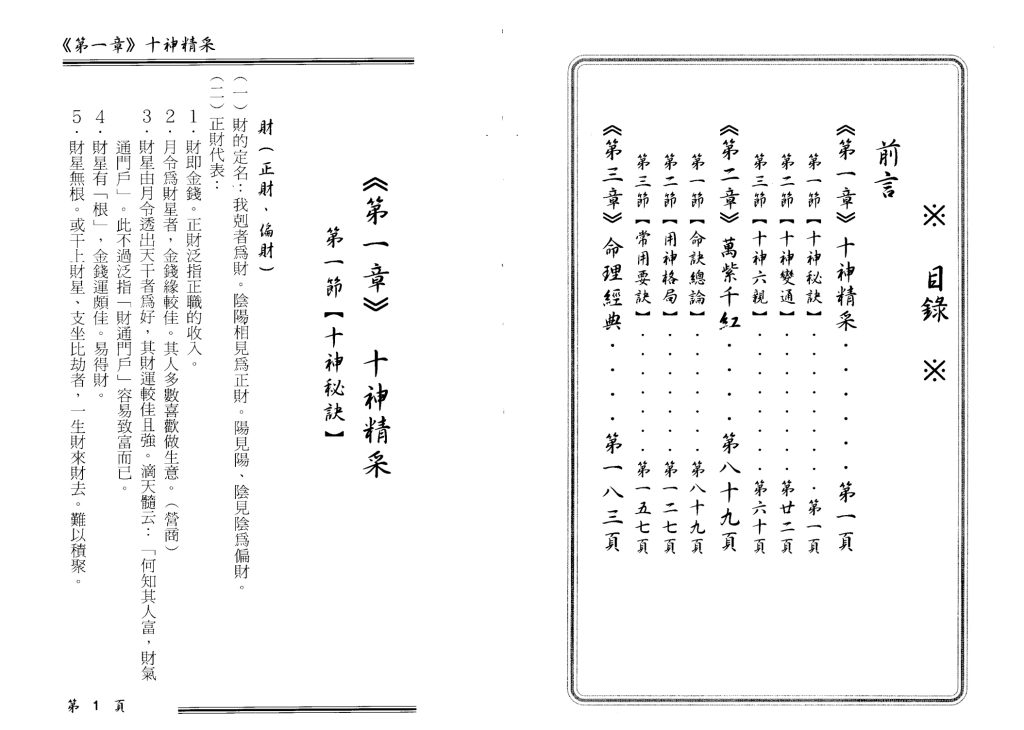 ※ 目錄 ※
前言
《第一章》十神精采．．．．．．第一頁
第一節【十神秘訣】．．．．．．．第一頁
第二節【十神變通】．．．．．．第廿二頁
第三節【十神六親】．．．．．．第六十頁
《第二章》萬紫千紅．．．．第八十九頁
第一節【命訣總論】．．．．．第八十九頁
第二節【用神格局】．．．．．第一二七頁
第三節【常用要訣】．．．．．第一五七頁
《第三章》命理經典．．．．第一八三頁
《第一章》十神精采
《第一章》 十神精采
第一節【十神秘訣】
財（正財、偏財）
（一）財的定名：我剋者爲財。陰陽相見爲正財。陽見陽、陰見陰爲偏財。
（二）正財代表：
1．財即金錢。正財泛指正職的收入。
2．月令爲財星者，金錢緣較佳。其人多數喜歡做生意。（營商）
3．財星由月令透出天干者爲好，其財運較佳且強。滴天髓云：「何知其人富，財氣
通門戶」。此不過泛指「財通門戶」容易致富而已。
4．財星有「根」，金錢運頗佳。易得財。
5．財星無根。或干上財星、支坐比劫者，一生財來財去。難以積聚。
第 1 頁